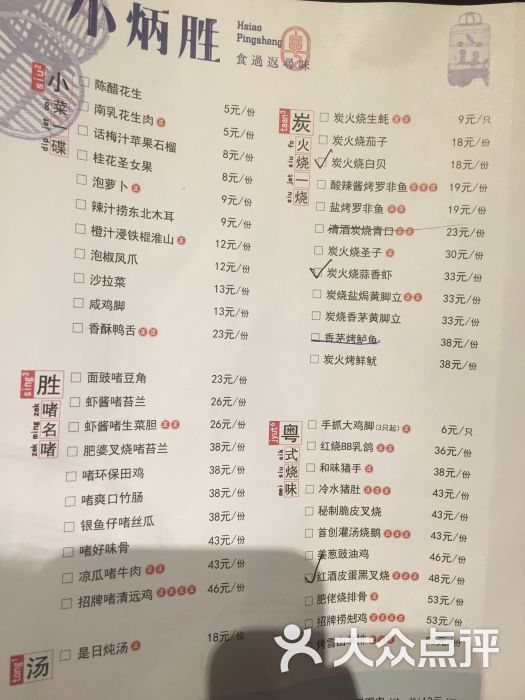 小炳胜
Hsiao
Pingsheng
食過返尋味
siu2
小菜一碟
陈醋花生 5元/份
南乳花生肉 正 5元/份
话梅汁苹果石榴 8元/份
桂花圣女果 8元/份
泡萝卜 正 9元/份
辣汁捞东北木耳 9元/份
橙汁浸铁棍淮山 正 12元/份
泡椒凤爪 12元/份
沙拉菜 13元/份
咸鸡脚 13元/份
香酥鸭舌 正正 23元/份
tan3
炭火烧一烧
炭火烧生蚝 正正 9元/只
炭火烧茄子 18元/份
炭火烧白贝 18元/份
酸辣酱烤罗非鱼 正正正 19元/份
盐烤罗非鱼 正正 19元/份
清酒炭烧青口 正正 23元/份
炭火烧圣子 正 30元/份
炭火烧蒜香虾 33元/份
炭烧盐焗黄脚立 正正 33元/份
炭烧香茅黄脚立 33元/份
香茅烤鲈鱼 38元/份
炭火烤鲜鱿 38元/份
sing3
胜啫名啫
面豉啫豆角 23元/份
虾酱啫苔兰 26元/份
虾酱啫生菜胆 正正 26元/份
肥婆叉烧啫苔兰 38元/份
啫环保田鸡 38元/份
啫爽口竹肠 38元/份
银鱼仔啫丝瓜 38元/份
啫好味骨 43元/份
凉瓜啫牛肉 正正 43元/份
招牌啫清远鸡 正正正正 46元/份
jyut6
粤式烧味
手抓大鸡脚(3只起) 正 6元/只
红烧BB乳鸽 正正 36元/份
和味猪手 正 38元/份
冷水猪肚 正正正 43元/份
秘制脆皮叉烧 43元/份
首创灌汤烧鹅 正正正 43元/份
姜葱豉油鸡 46元/份
红酒皮蛋黑叉烧 正正正 48元/份
肥佬烧排骨 正 53元/份
招牌捞起鸡 正正正正 53元/份
烤雪山
tong1
汤
是日炖汤 正 18元/位
大众点评